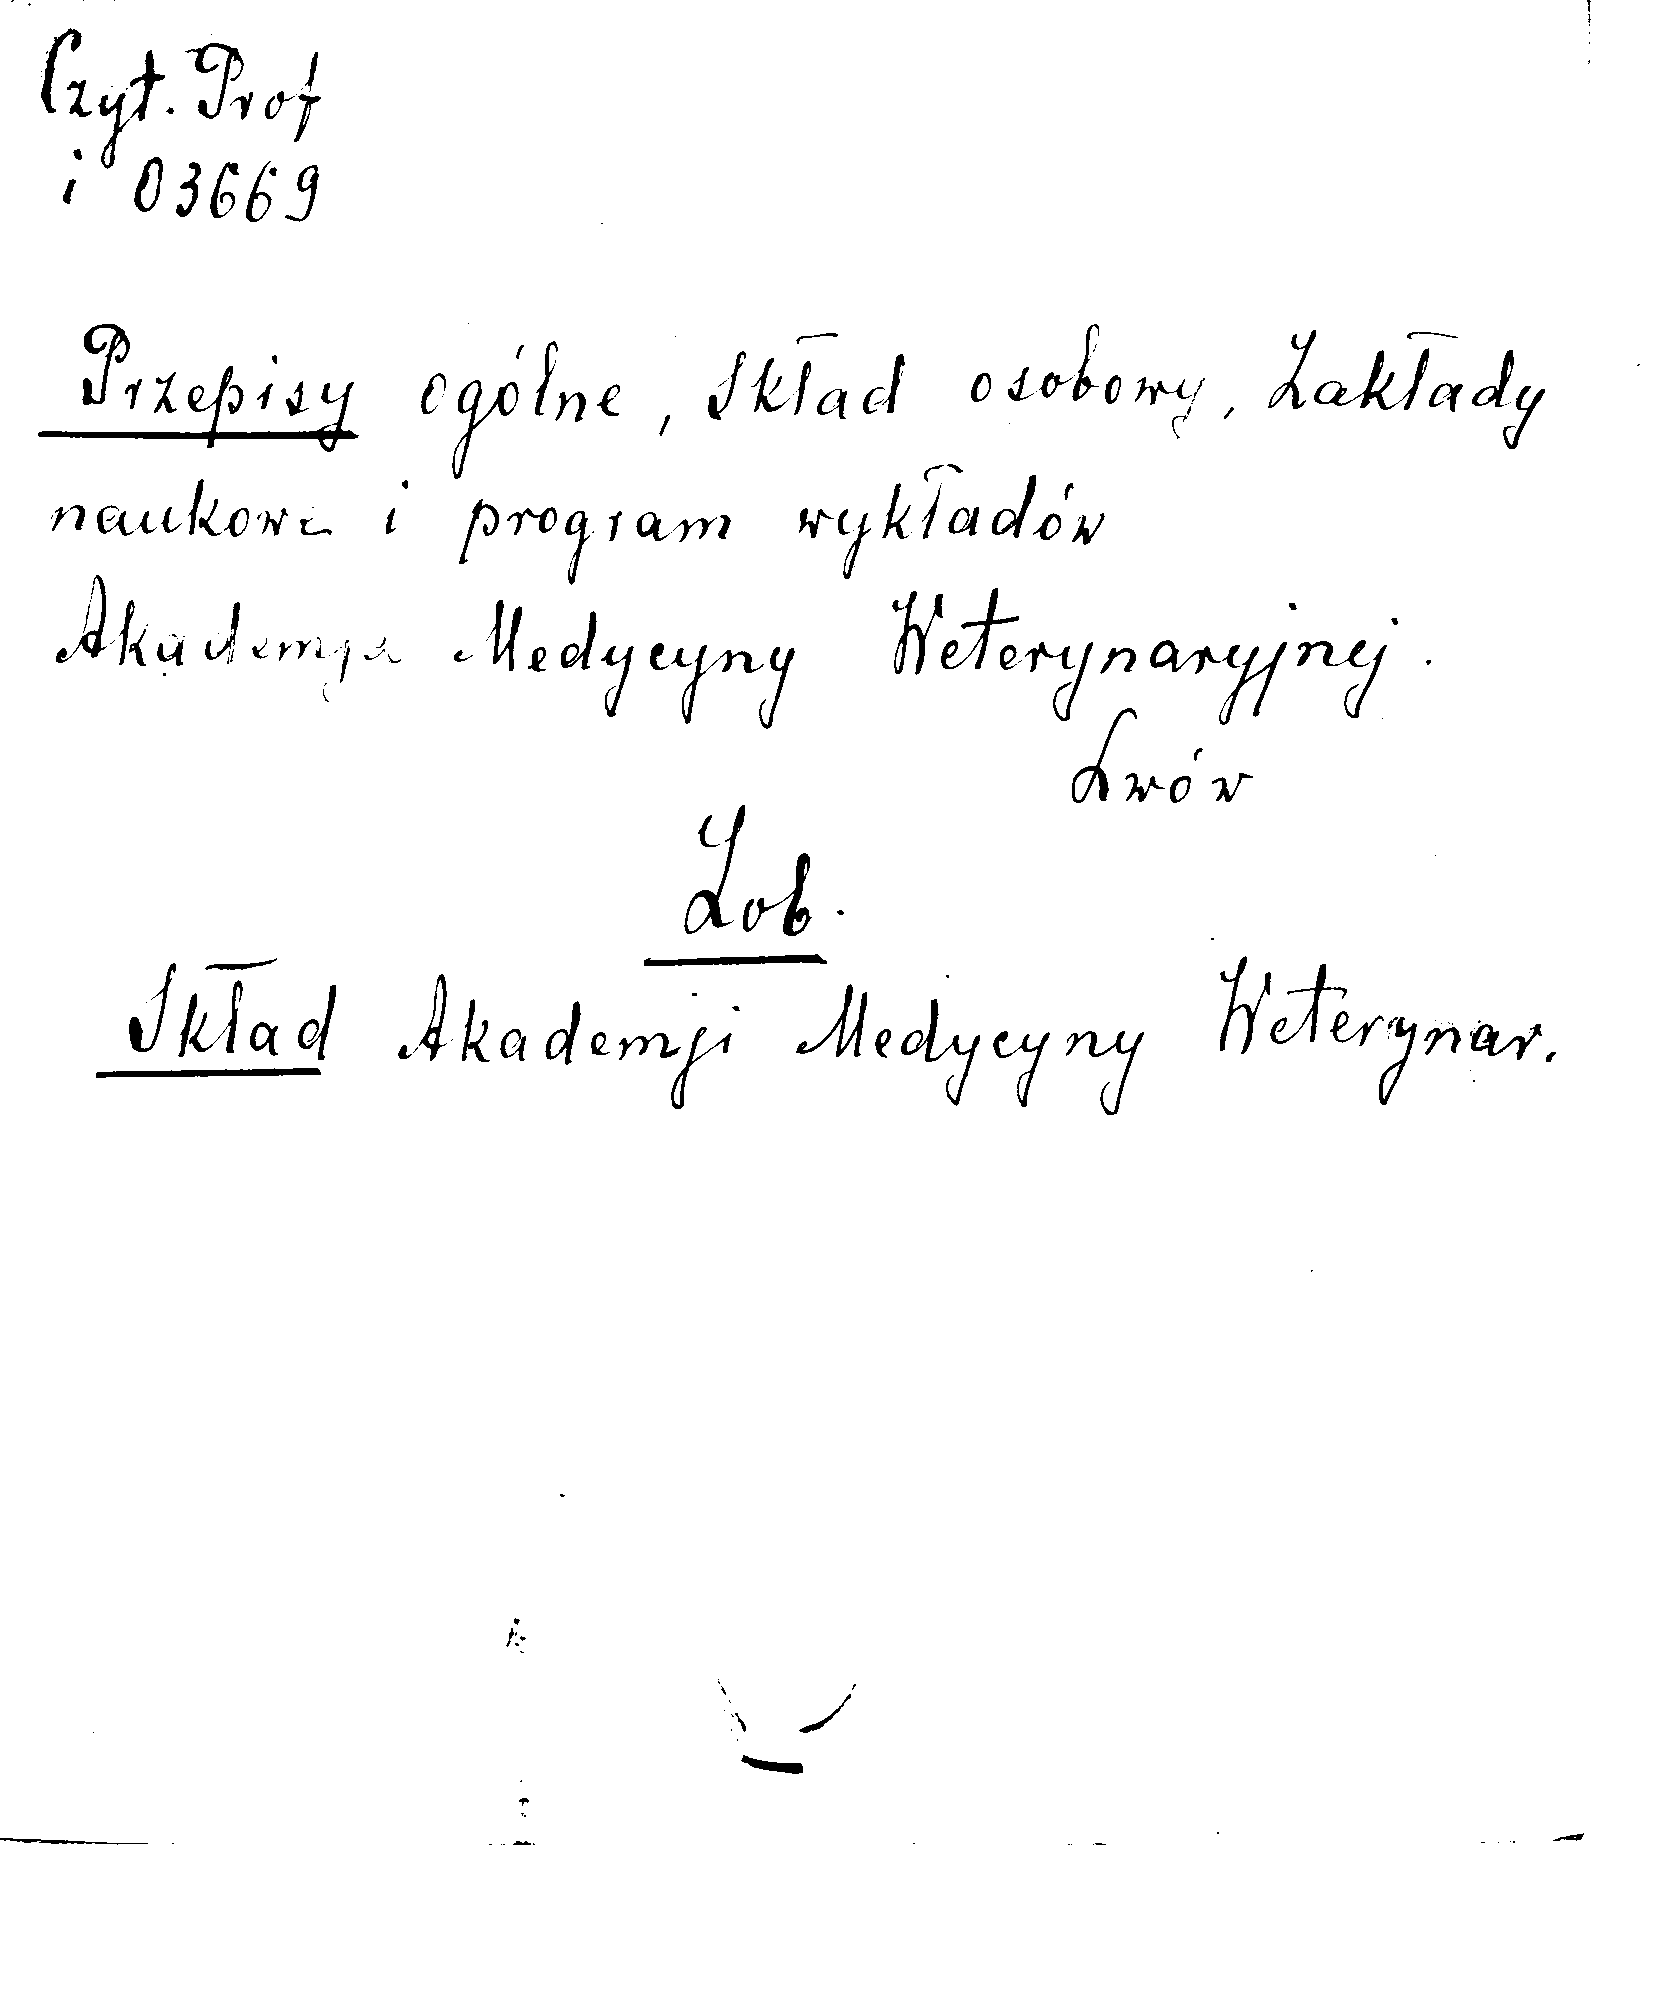 Czyt. Prof
i 03669
Przepisy ogólne, Skład osobowy, Zakłady
naukowe i program wykładów
Akademja Medycyny Weterynaryjnej.
Lwów
Zob.
Skład Akademji Medycyny Weterynar.